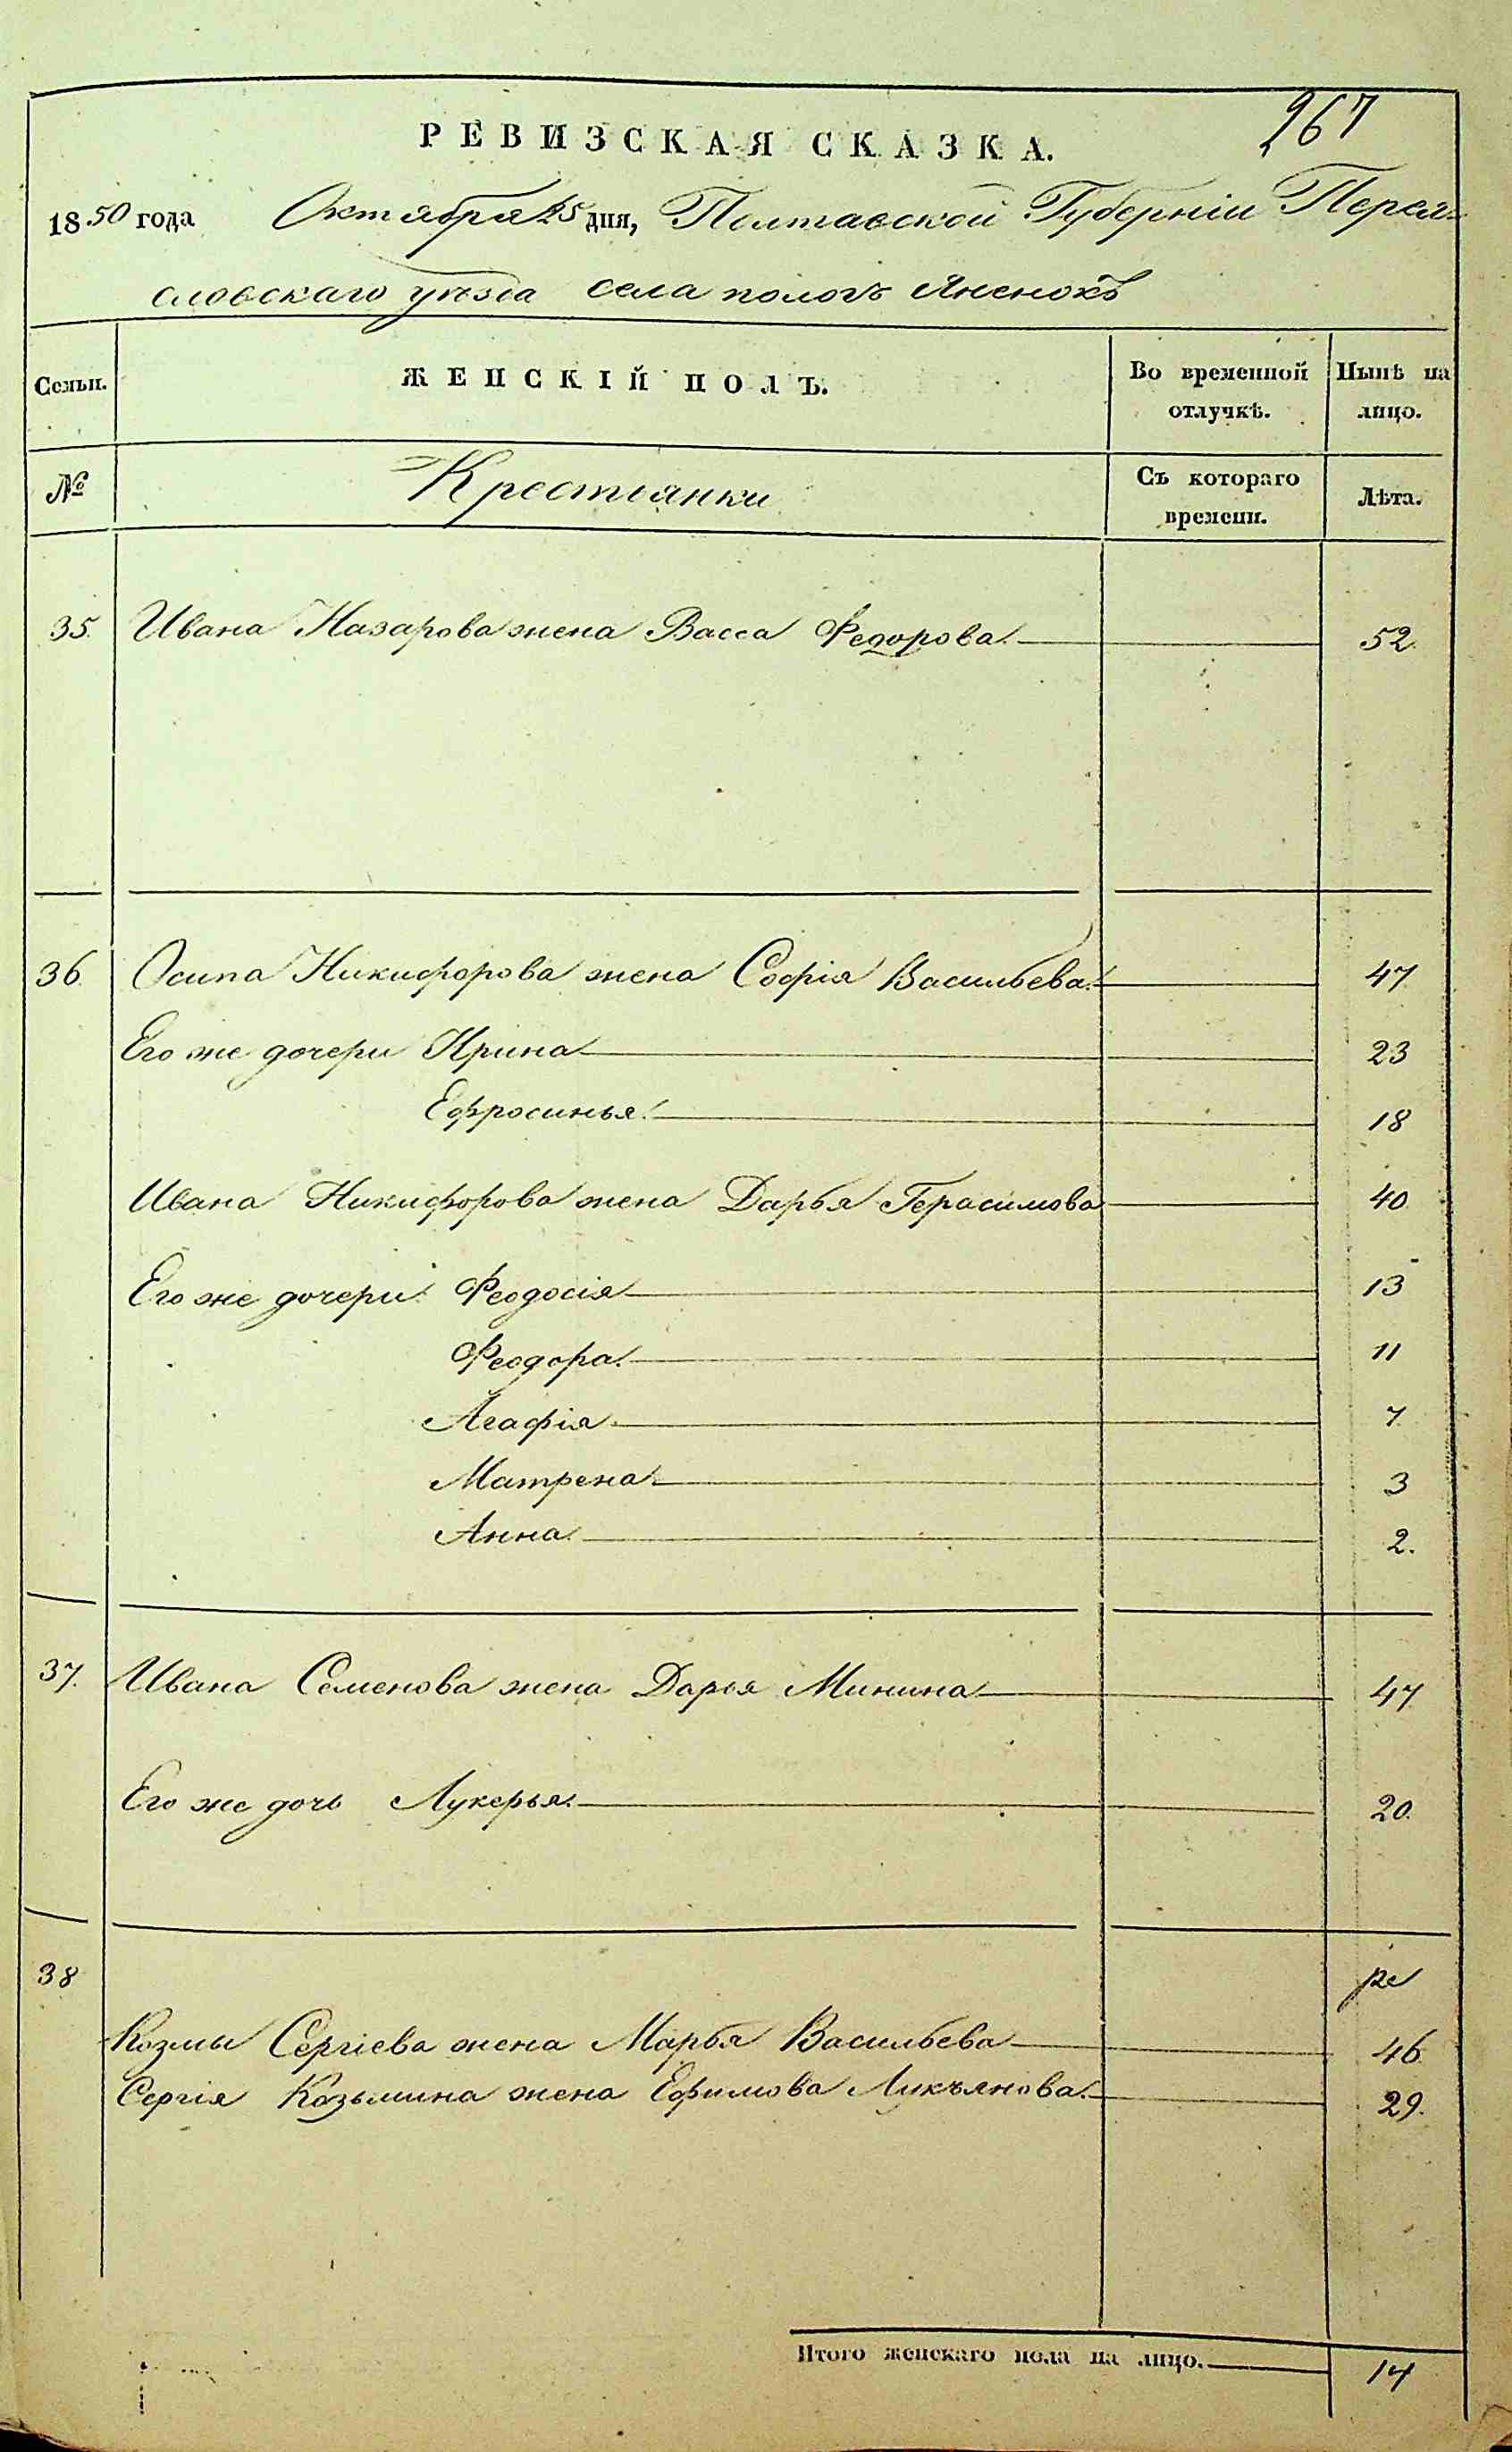 267
РЕВИЗСКАЯ СКАЗКА.
1850 года Октября 25 дня, Полтавской Губерніи Перея-
словскаго уѣзда села пологъ Яненокъ
Семьи. ЖЕНСКІЙ ПОЛЪ. Во временной отлучкѣ. Нынѣ на лицо.
№ Крестьянки Съ котораго времени. Лѣта.
35. Ивана Назарова жена Васса Федорова. 52.
36. Осипа Никифорова жена Софія Васильева. 47
Его же дочери Ирина 23
Ефросинья. 18
Ивана Никифорова жена Дарья Герасимова 40
Его же дочери Феодосія 13
Феодора. 11
Агафія 7
Матрена. 3
Анна. 2.
37. Ивана Семенова жена Дарья Минина 47
Его же дочь Лукерья. 20.
38
Козмы Сергіева жена Марья Васильева 46.
Сергія Козьмина жена Ефимова Лукъянова. 29.
Итого женскаго пола на лицо. 14